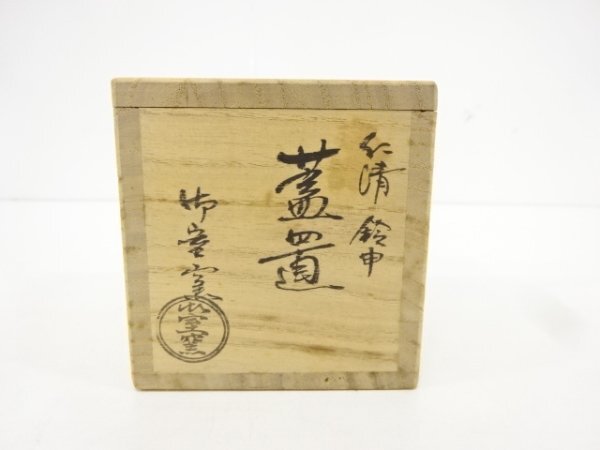 仁清 鈴申
蓋置
御室
御室窯